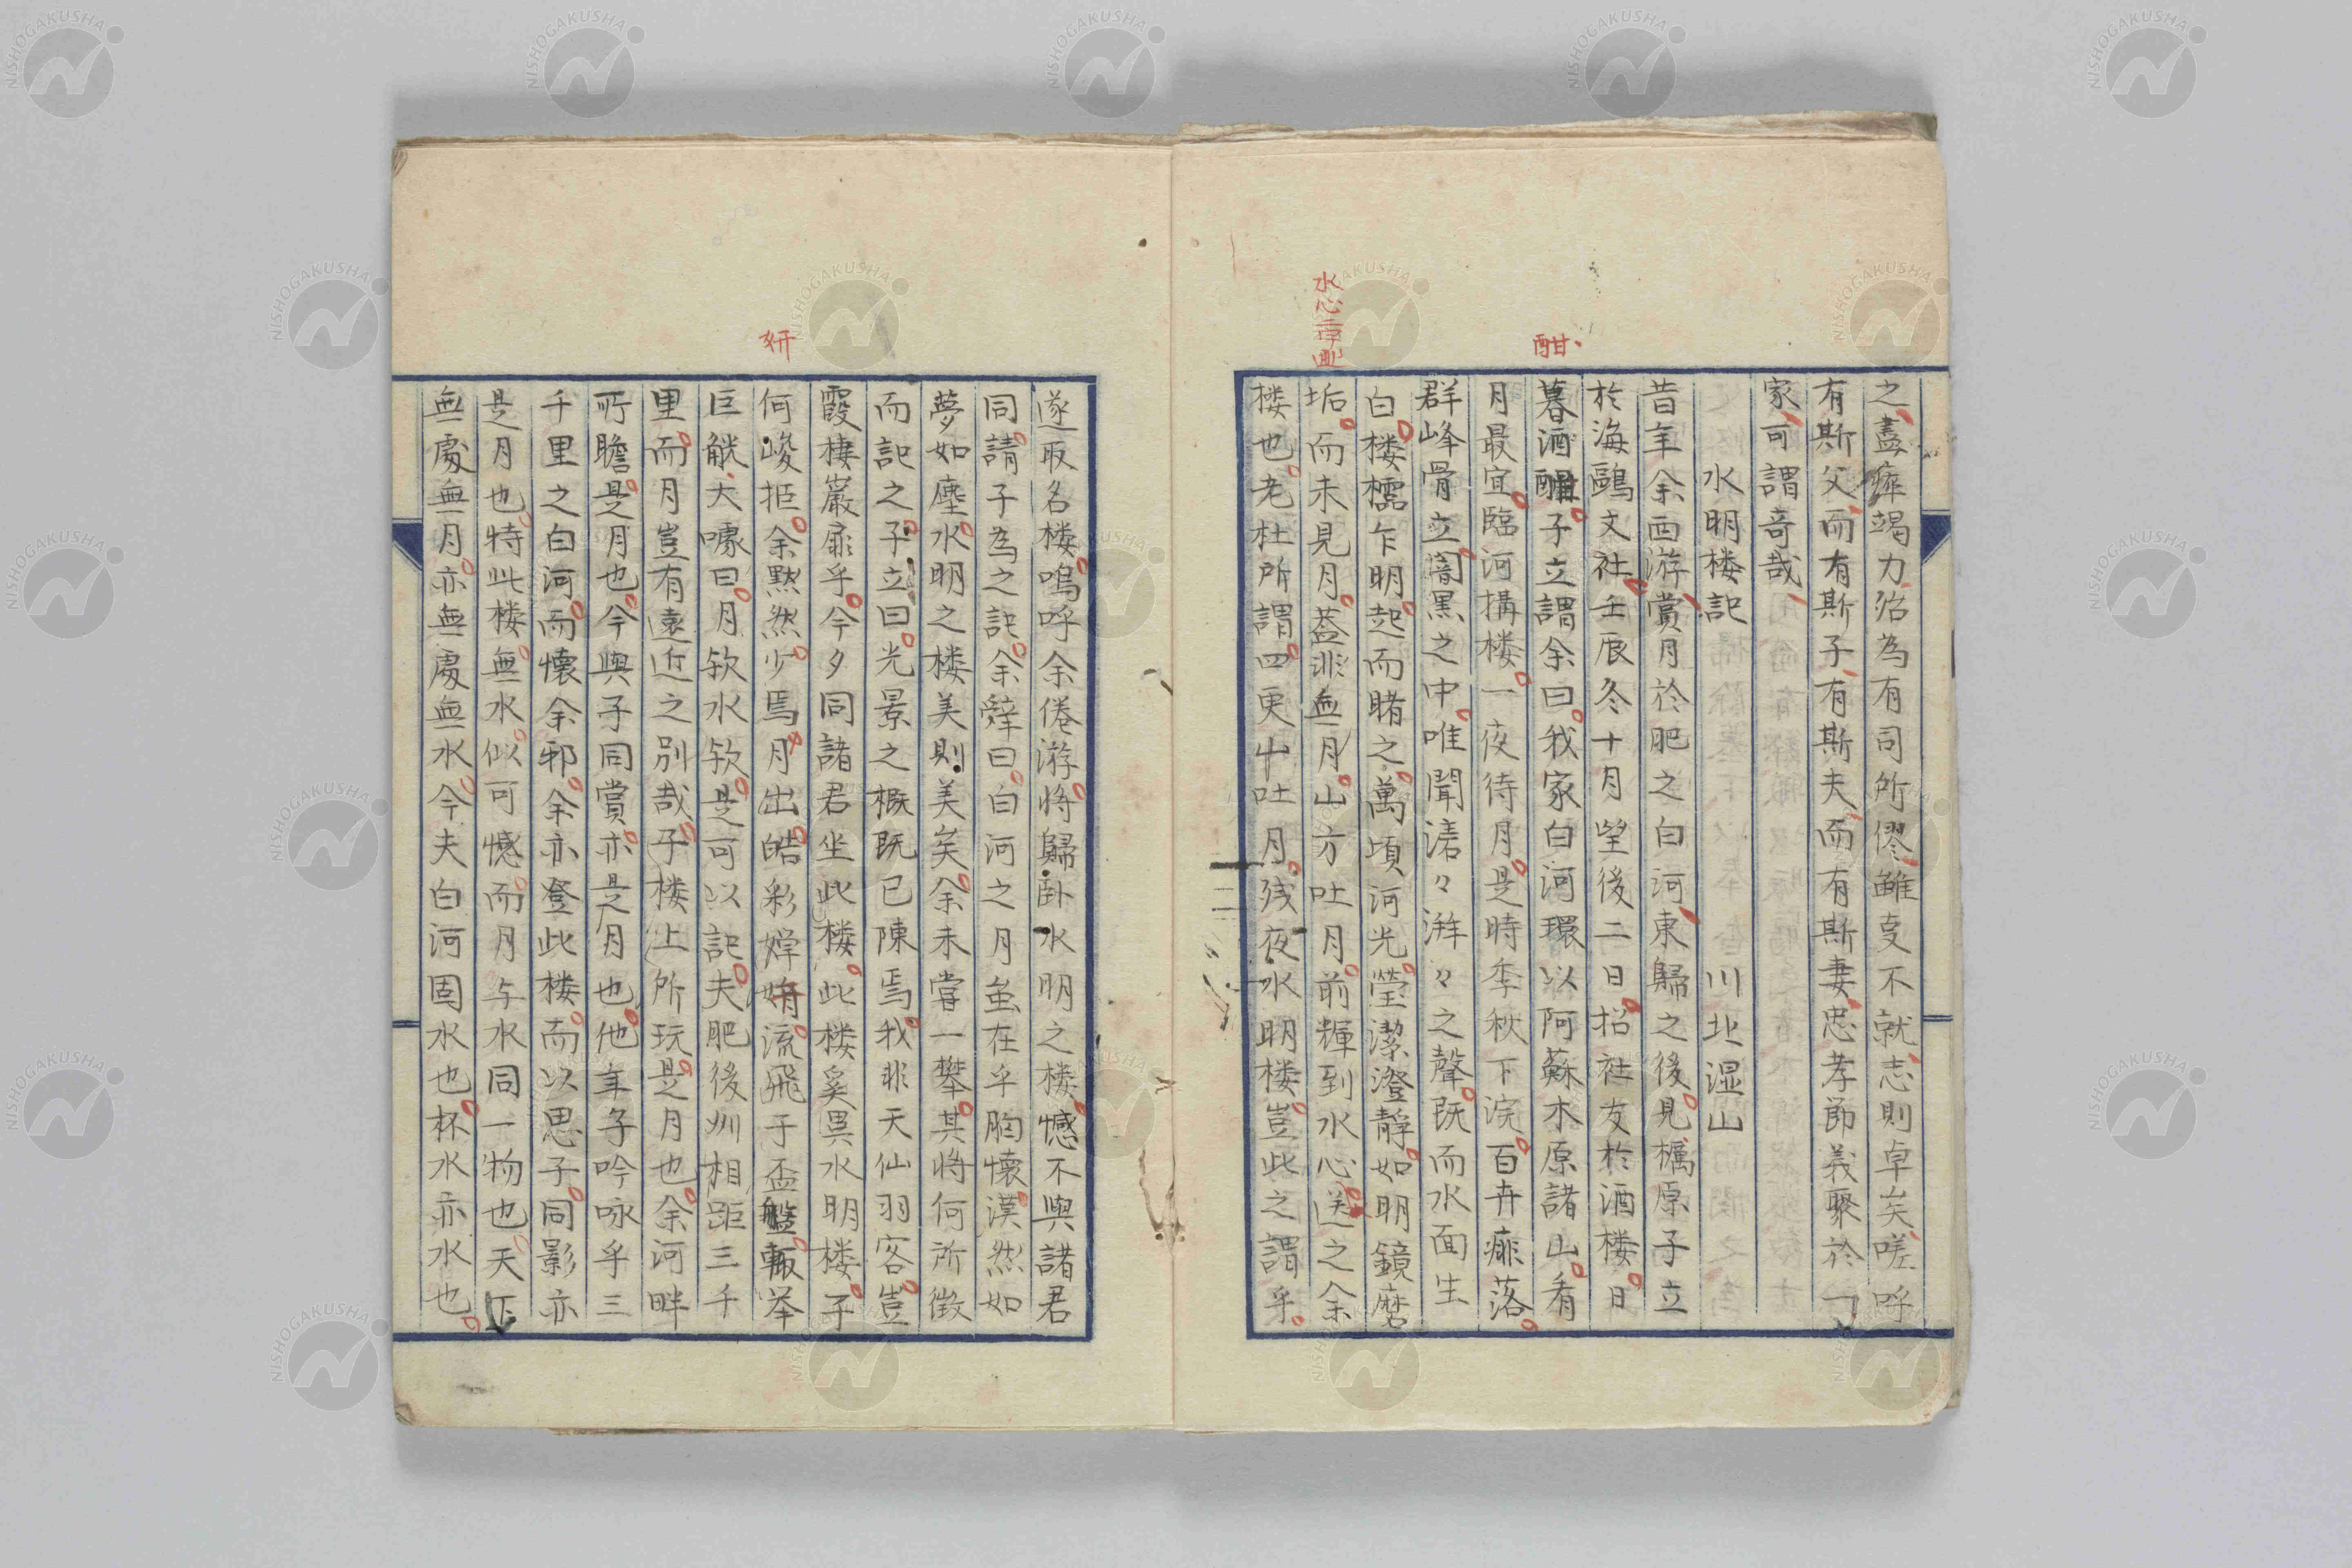 之盡瘁竭力治為有司所僇雖支不就志則卓矣嗟呼
有斯父而有斯子有斯夫而有斯妻忠孝節義聚於一
家可謂奇哉
水明楼記 川北湿山
昔年余西游賞月於肥之白河東歸之後見櫔原子立
於海鷗文社壬辰冬十月望後二日招社友於酒楼日
暮酒酣子立謂余曰我家白河環以阿蘇木原諸山看
月最宜臨河搆楼一夜待月是時季秋下浣百卉痱落
群峰骨立闇黒之中唯聞涾々湃々之聲既而水面生
白楼櫺乍明起而睹之萬頃河光瑩潔澄靜如明鏡磨
垢而未見月葢非無月山方吐月前輝到水心送之余
楼也老杜所謂四更山吐月残夜水明楼豈此之謂乎
遂取名楼嗚呼余倦游将歸卧水明之楼憾不與諸君
同請子為之記余辤曰白河之月虽在乎胸懐漠然如
夢如塵水明之楼美則美矣余未嘗一攀其将何所徴
而記之子立曰光景之概既已陳焉我非天仙羽客豈
霞棲巖扉乎今夕同諸君坐此楼此楼奚異水明楼子
何峻拒余黙然少焉月出皓彩婵娟流飛于盃盤輙举
巨觥大噱曰月欤水欤是可以記夫肥後州相距三千
里而月豈有遠近之別哉子楼上所玩是月也余河畔
所瞻是月也今與子同賞亦是月也他年子吟咏乎三
千里之白河而懐余邪余亦登此楼而以思子同影亦
是月也特此楼無水似可憾而月与水同一物也天下
無處無月亦無處無水今夫白河固水也杯水亦水也
酣
水心
妍
NISHOGAKUSHA